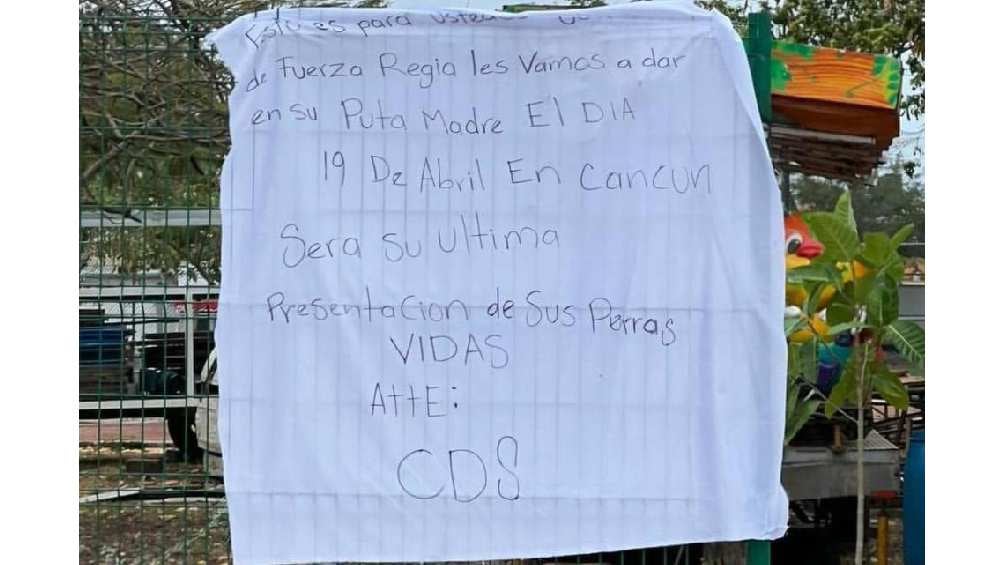 Esto es para ustedes
de Fuerza Regia les Vamos a dar
en su Puta Madre El DIA
19 De Abril En Cancun
Sera su ultima
Presentacion de Sus Perras
VIDAS
AttE:
CDS